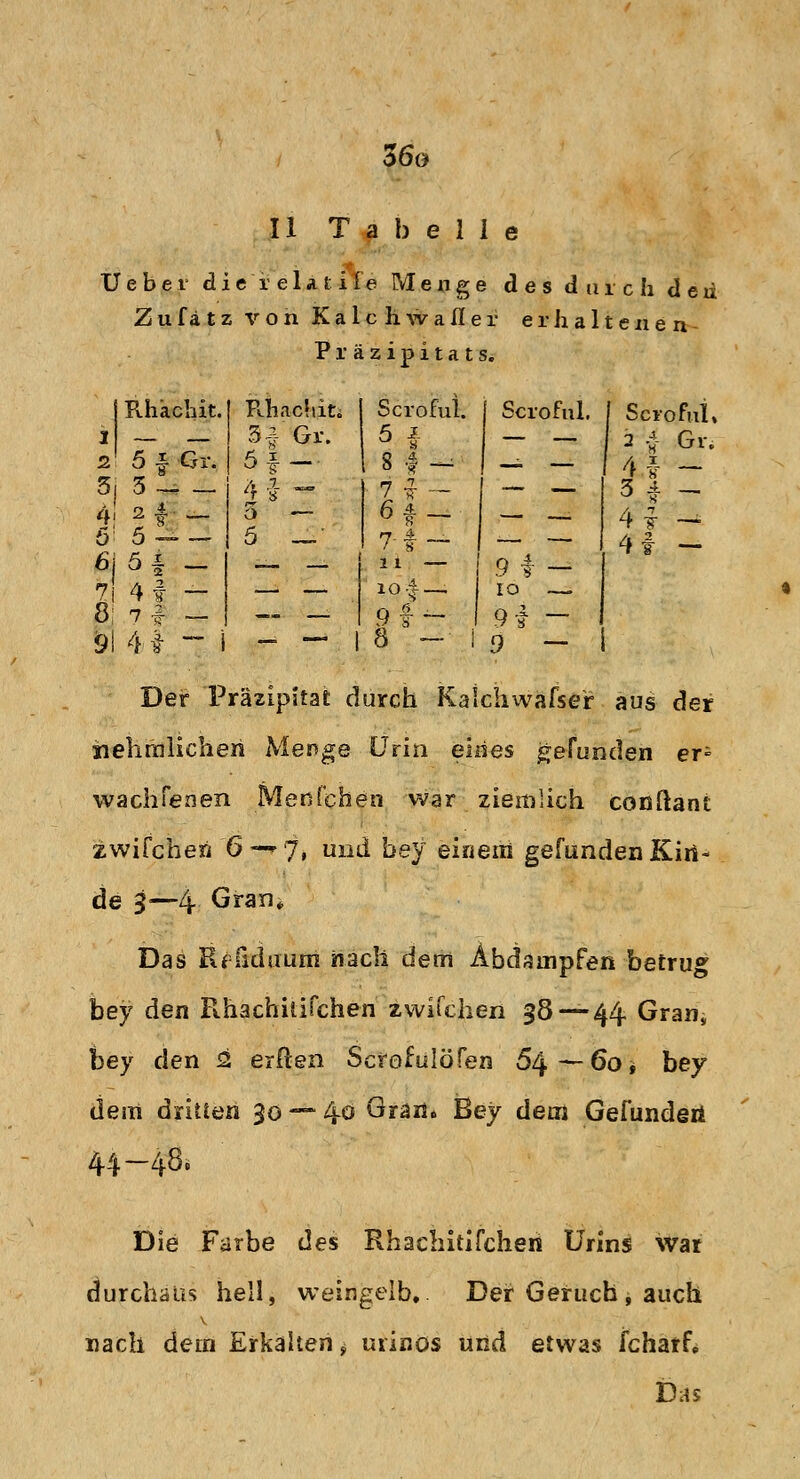 360
II Tabelle
Ueber die relative Menge des durch den
Zusatz von Kalchwasser erhaltenen
Präzipitats.
Rhachit. Rhachit. Scroful. Scroful. Scroful.
1 — — 3 Gr. 5 — — 2 4/8 Gr.
2 5 Gr. 5 1/8 — 8 4/8 — — — 4 1/8 —
3 3 — — 4 — 7 — — — 3 4/8 —
4 2 4/8 — 3 — 6 4/8 — — — 4 —
5 5 — — 5 — 7 4/8 — — — 4 —
6 5 1/2 — — — 11 — 9 4/8 —
7 4 — — — 10 4/8 — 10 —
8 7 — — — 9 6/8 — 9 4/8 —
9 4 — — — 8 — 9 —
Der Präzipitat durch Kalchwaſser aus der
nehmlichen Menge Urin eines geſunden er-
wachſenen Menſchen war ziemlich conſtant
zwiſchen 6—7, und bey einem geſunden Kin-
de 3—4 Gran.
Das Reſiduum nach dem Abdampfen betrug
bey den Rhachitiſchen zwiſchen 38—44 Gran,
bey den 2 erſten Scrofulöſen 54—60, bey
dem dritten 30—40 Gran. Bey dem Geſunden
44—48.
Die Farbe des Rhachitiſchen Urins war
durchaus hell, weingelb. Der Geruch, auch
nach dem Erkalten, urinos und etwas ſcharf.
Das